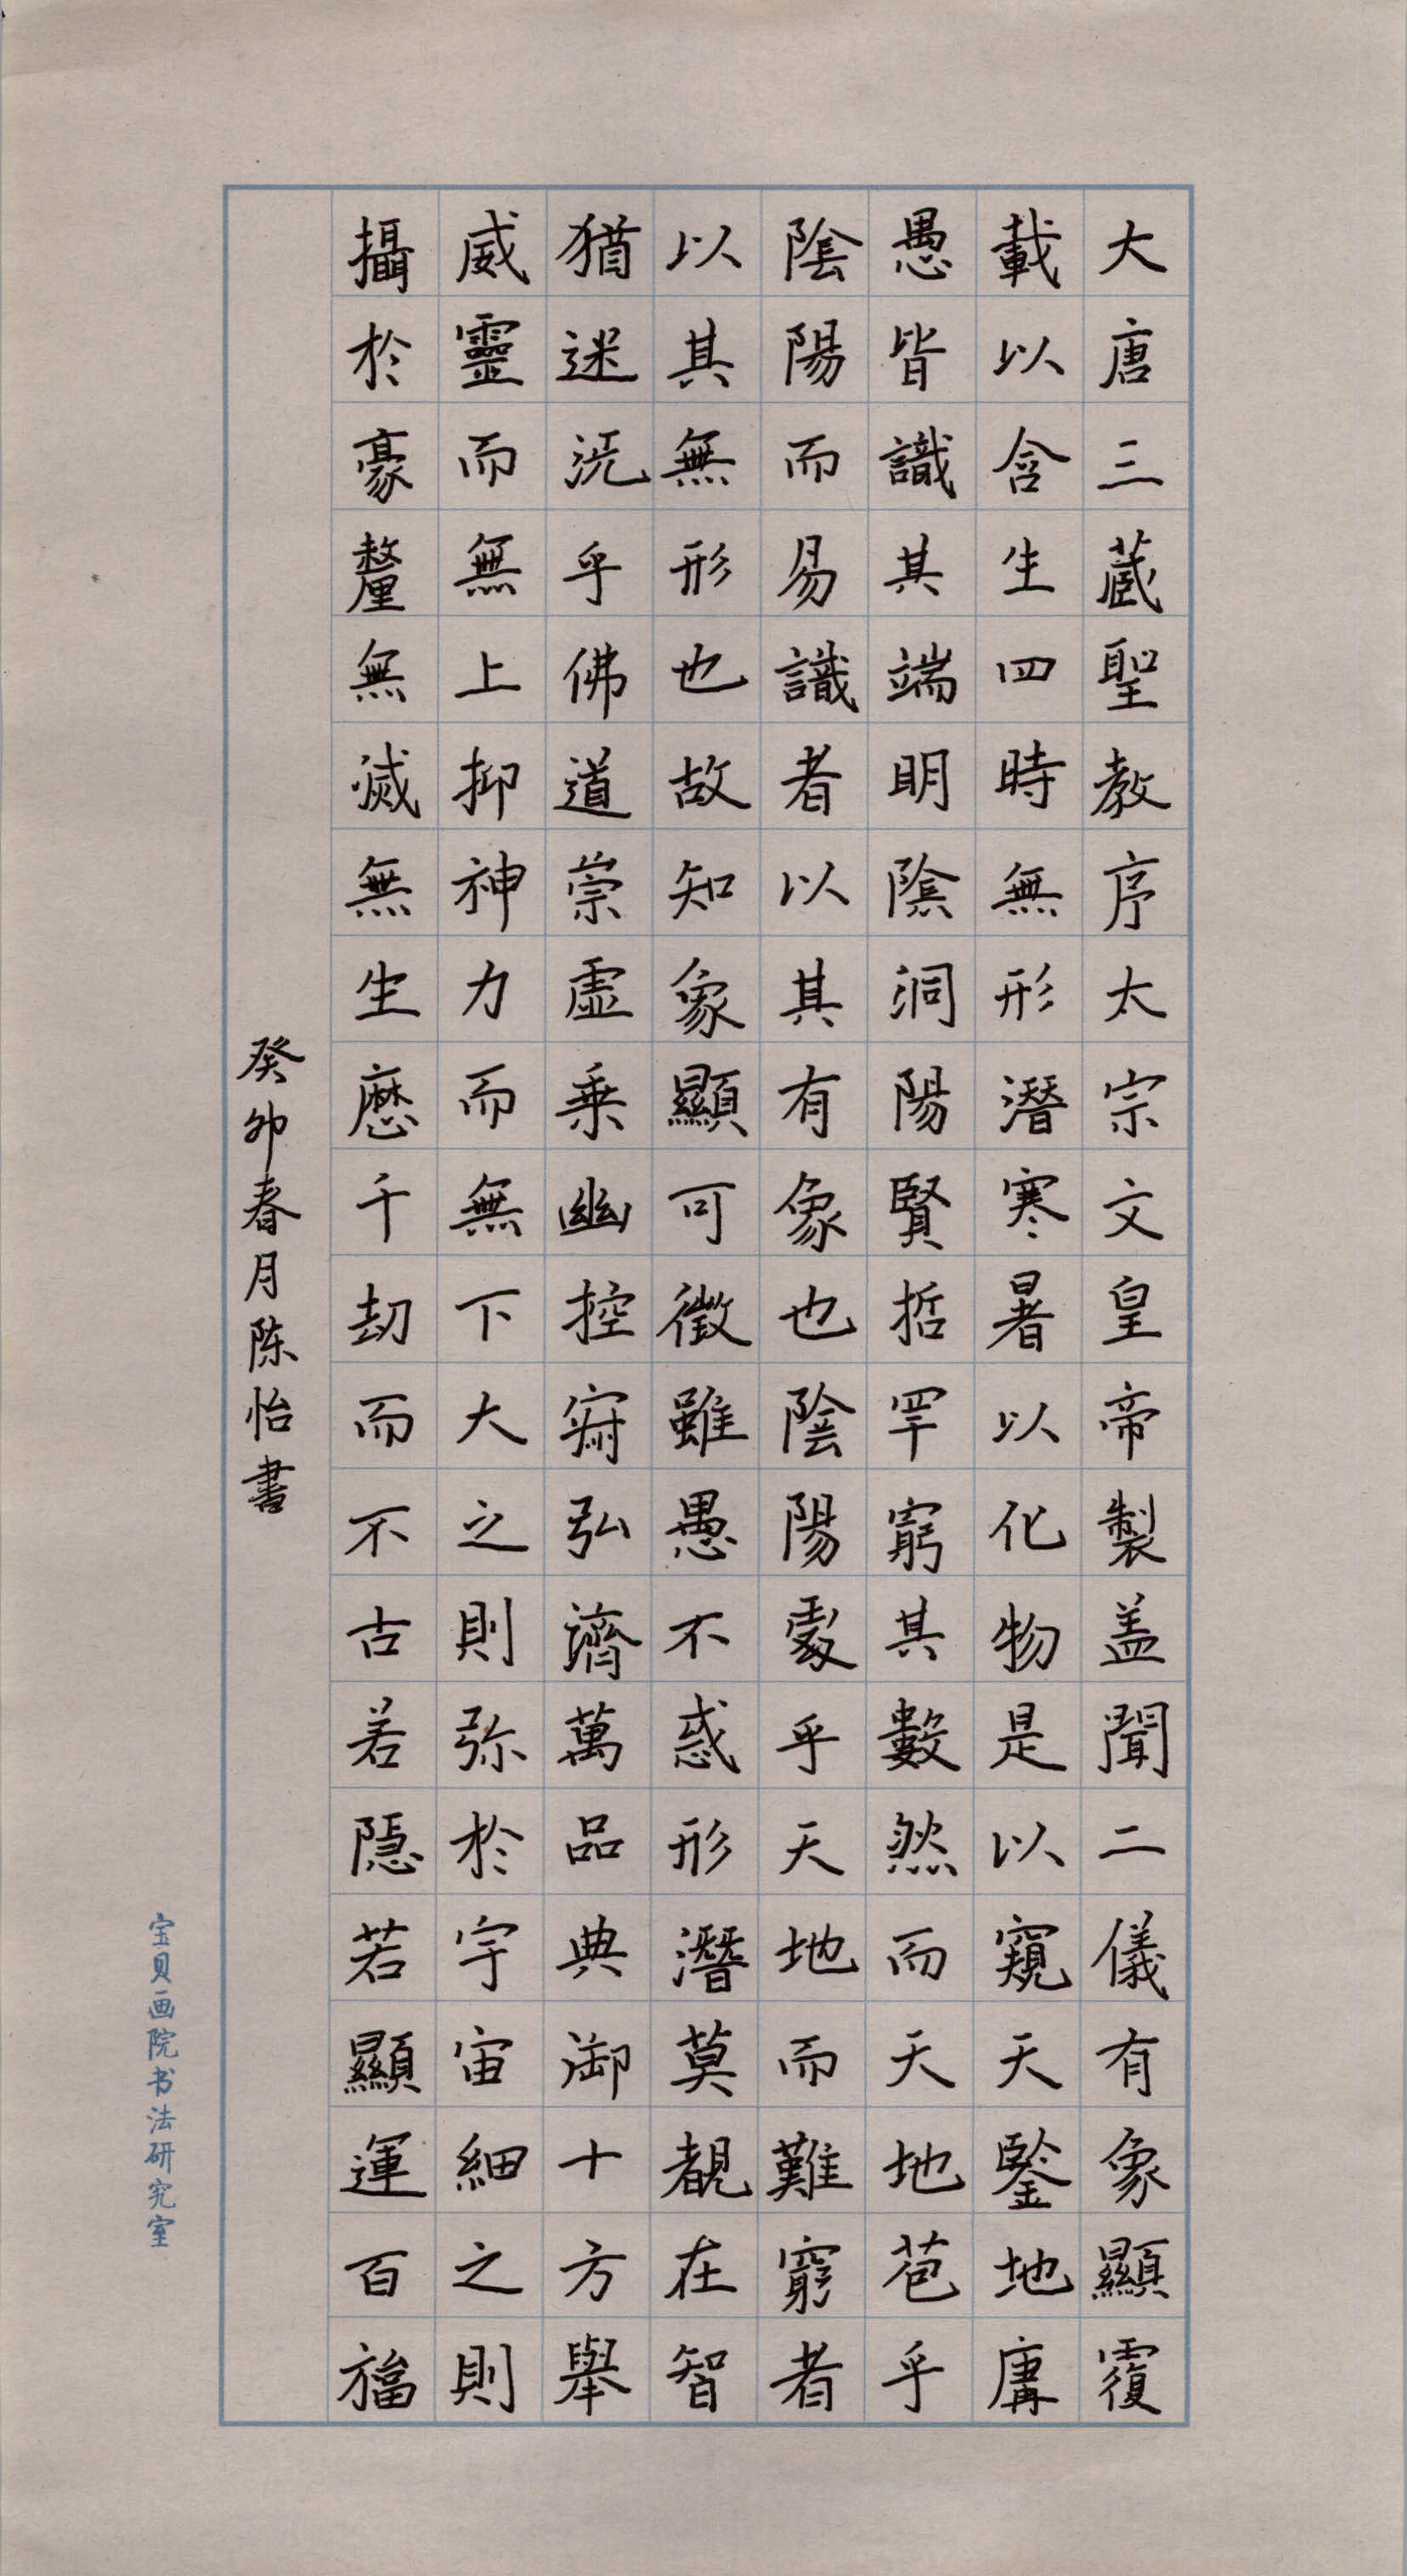 大唐三蔵聖教序太宗文皇帝製盖聞二儀有象顯覆
載以含生四時無形潛寒暑以化物是以窺天鑒地庸
愚皆識其端明陰洞陽賢哲罕窮其數然而天地苞乎
陰陽而易識者以其有象也陰陽處乎天地而難窮者
以其無形也故知象顯可徵雖愚不惑形潛莫覩在智
猶迷況乎佛道崇虛乗幽控寂弘濟萬品典御十方舉
威靈而無上抑神力而無下大之則弥於宇宙細之則
攝於豪釐無滅無生歴千劫而不古若隱若顯運百福
癸卯春月陈怡書
宝贝画院书法研究室